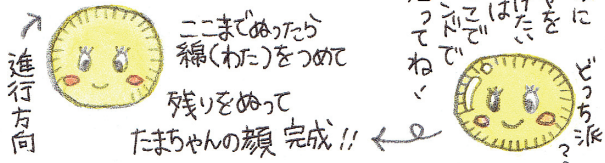 進行方向
ここまでぬったら
綿(わた)をつめて
残りをぬって
たまちゃんの顔 完成!!
に
を
けたい
は
こで
ンドで
ってね!
どっち派?